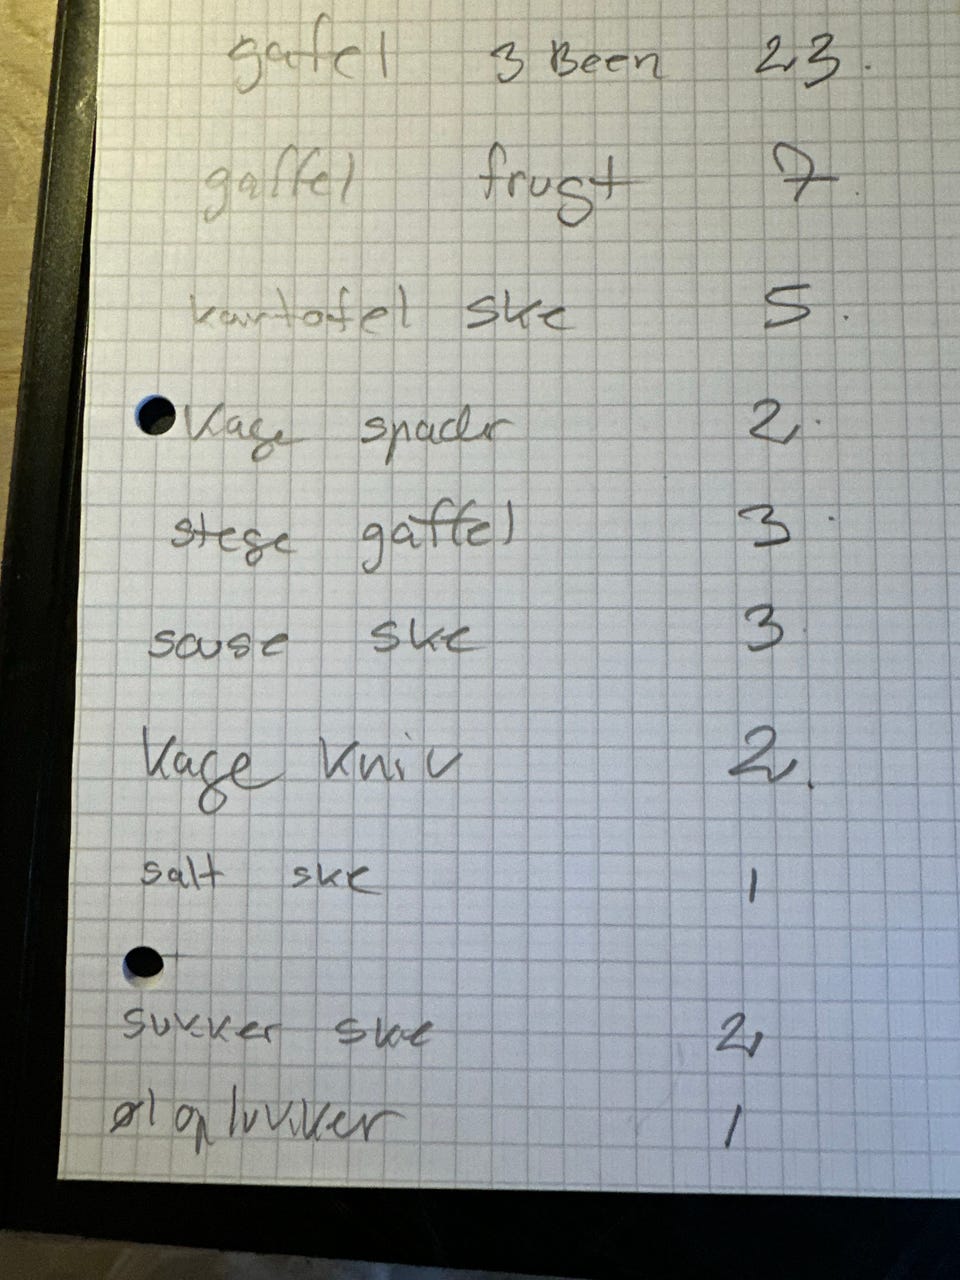 gafel 3 Been 23.
gaffel frugt 7.
kartofel ske 5.
Kage spader 2.
stege gaffel 3.
sause ske 3.
Kage Kniv 2.
salt ske 1
sukker ske 2
øl oplukker 1